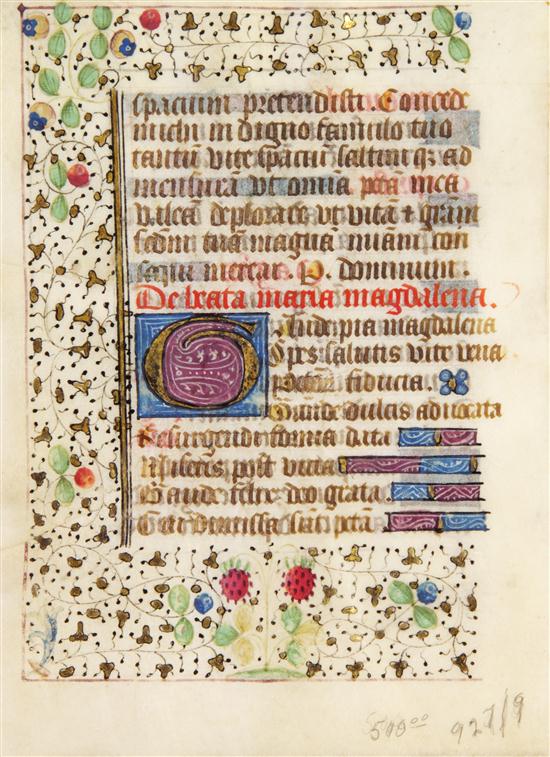 spacium pretendisti. Concede
michi indigno famulo tuo
tantū vite spaciū saltim qz ad
mensurā vt omīa pctā mea
valeā deplorare vt vitā & grām
scdm tuā magnā miām con
sequi merear. P. dominum.
De beata maria magdalena.
Gaude pia magdalena
Spes salutis vite vena
fiducia.
Gaude dulcis aduocata
Resurgendi forma data
Miseris post
Gaude felix deo grata.
Cui dimissa sūt pctā
500⁰⁰ 927/9